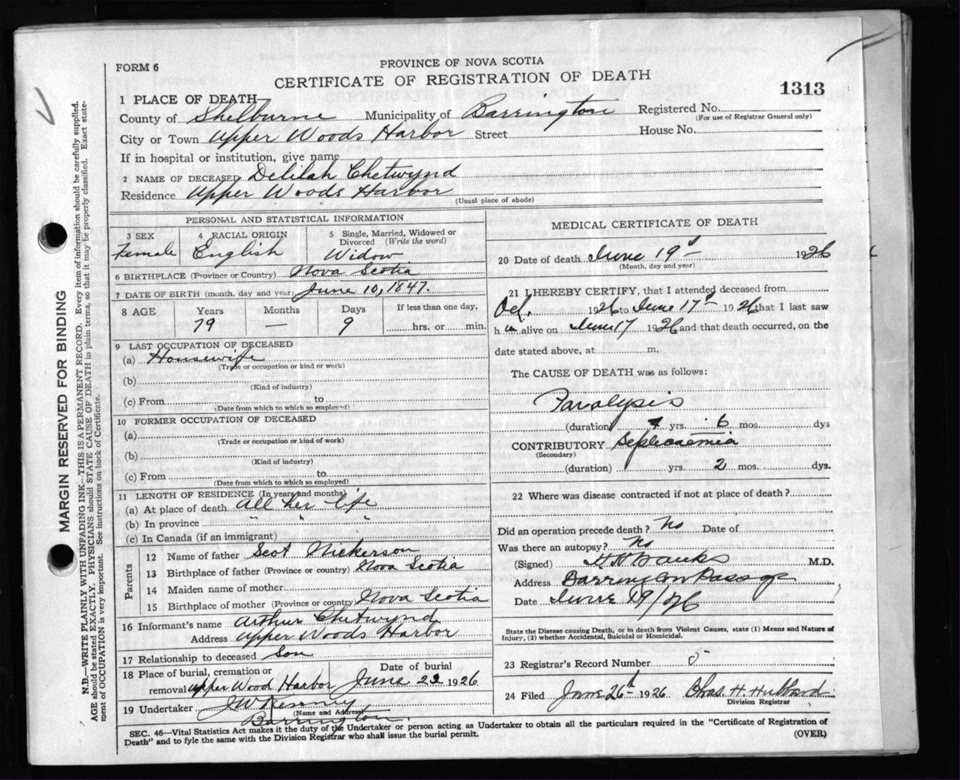 FORM 6
PROVINCE OF NOVA SCOTIA
CERTIFICATE OF REGISTRATION OF DEATH
1313
1 PLACE OF DEATH
County of Shelburne Municipality of Barrington Registered No.
(For use of Registrar General only)
City or Town Upper Woods Harbor Street House No.
If in hospital or institution, give name
2 NAME OF DECEASED Delilah Chetwynd
Residence Upper Woods Harbor
(Usual place of abode)
PERSONAL AND STATISTICAL INFORMATION
3 SEX 4 RACIAL ORIGIN 5 Single, Married, Widowed or Divorced (Write the word)
Female English Widow
6 BIRTHPLACE (Province or Country) Nova Scotia
7 DATE OF BIRTH (month, day and year) June 10, 1847.
8 AGE Years Months Days If less than one day,
79 — 9 hrs. or min.
9 LAST OCCUPATION OF DECEASED
(a) Housewife
(Trade or occupation or kind or work)
(b)
(Kind of industry)
(c) From to
(Date from which to which so employed)
10 FORMER OCCUPATION OF DECEASED
(a)
(Trade or occupation or kind of work)
(b)
(Kind of industry)
(c) From to
(Date from which to which so employed)
11 LENGTH OF RESIDENCE (In years and months)
(a) At place of death All her life
(b) In province " " "
(c) In Canada (if an immigrant)
Parents
12 Name of father Scot Nickerson
13 Birthplace of father (Province or country) Nova Scotia
14 Maiden name of mother
15 Birthplace of mother (Province or country) Nova Scotia
16 Informant's name Arthur Chetwynd
Address Upper Woods Harbor
17 Relationship to deceased Son
18 Place of burial, cremation or removal Upper Wood Harbor
Date of burial June 23 1926
19 Undertaker J W Kenny
(Name and Address)
Barrington
MEDICAL CERTIFICATE OF DEATH
20 Date of death June 19 1926
(Month, day and year)
21 I HEREBY CERTIFY, that I attended deceased from
1926 to June 17 1926 that I last saw
h alive on June 17 1926 and that death occurred, on the
date stated above, at m.
The CAUSE OF DEATH was as follows:
Paralysis
(duration) yrs. 6 mos. dys
CONTRIBUTORY Septicaemia
(Secondary)
(duration) yrs. 2 mos. dys.
22 Where was disease contracted if not at place of death?
Did an operation precede death? No Date of
Was there an autopsy? No
(Signed) Banks M.D.
Address Barrington Passage
Date June 19/26
State the Disease causing Death, or in death from Violent Causes, state (1) Means and Nature of
Injury, (2) whether Accidental, Suicidal or Homicidal.
23 Registrar's Record Number 5
24 Filed June 26th 1926 Chas. H. Hubbard
Division Registrar
SEC. 46—Vital Statistics Act makes it the duty of the Undertaker or person acting as Undertaker to obtain all the particulars required in the "Certificate of Registration of
Death" and to fyle the same with the Division Registrar who shall issue the burial permit.
(OVER)
MARGIN RESERVED FOR BINDING
N.B.—WRITE PLAINLY WITH UNFADING INK—THIS IS A PERMANENT RECORD. Every item of information should be carefully supplied.
AGE should be stated EXACTLY. PHYSICIANS should STATE CAUSE OF DEATH in plain terms, so that it may be properly classified. Exact state-
ment of OCCUPATION is very important. See instructions on back of Certificate.